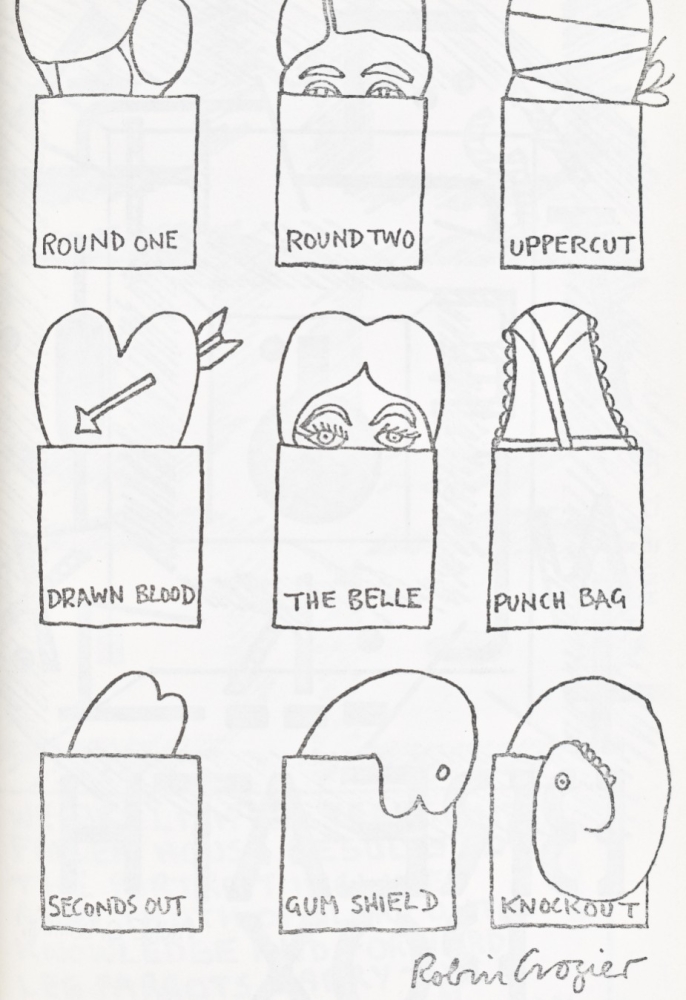 ROUND ONE
ROUND TWO
UPPERCUT
DRAWN BLOOD
THE BELLE
PUNCH BAG
SECONDS OUT
GUM SHIELD
KNOCKOUT
Robin Crozier